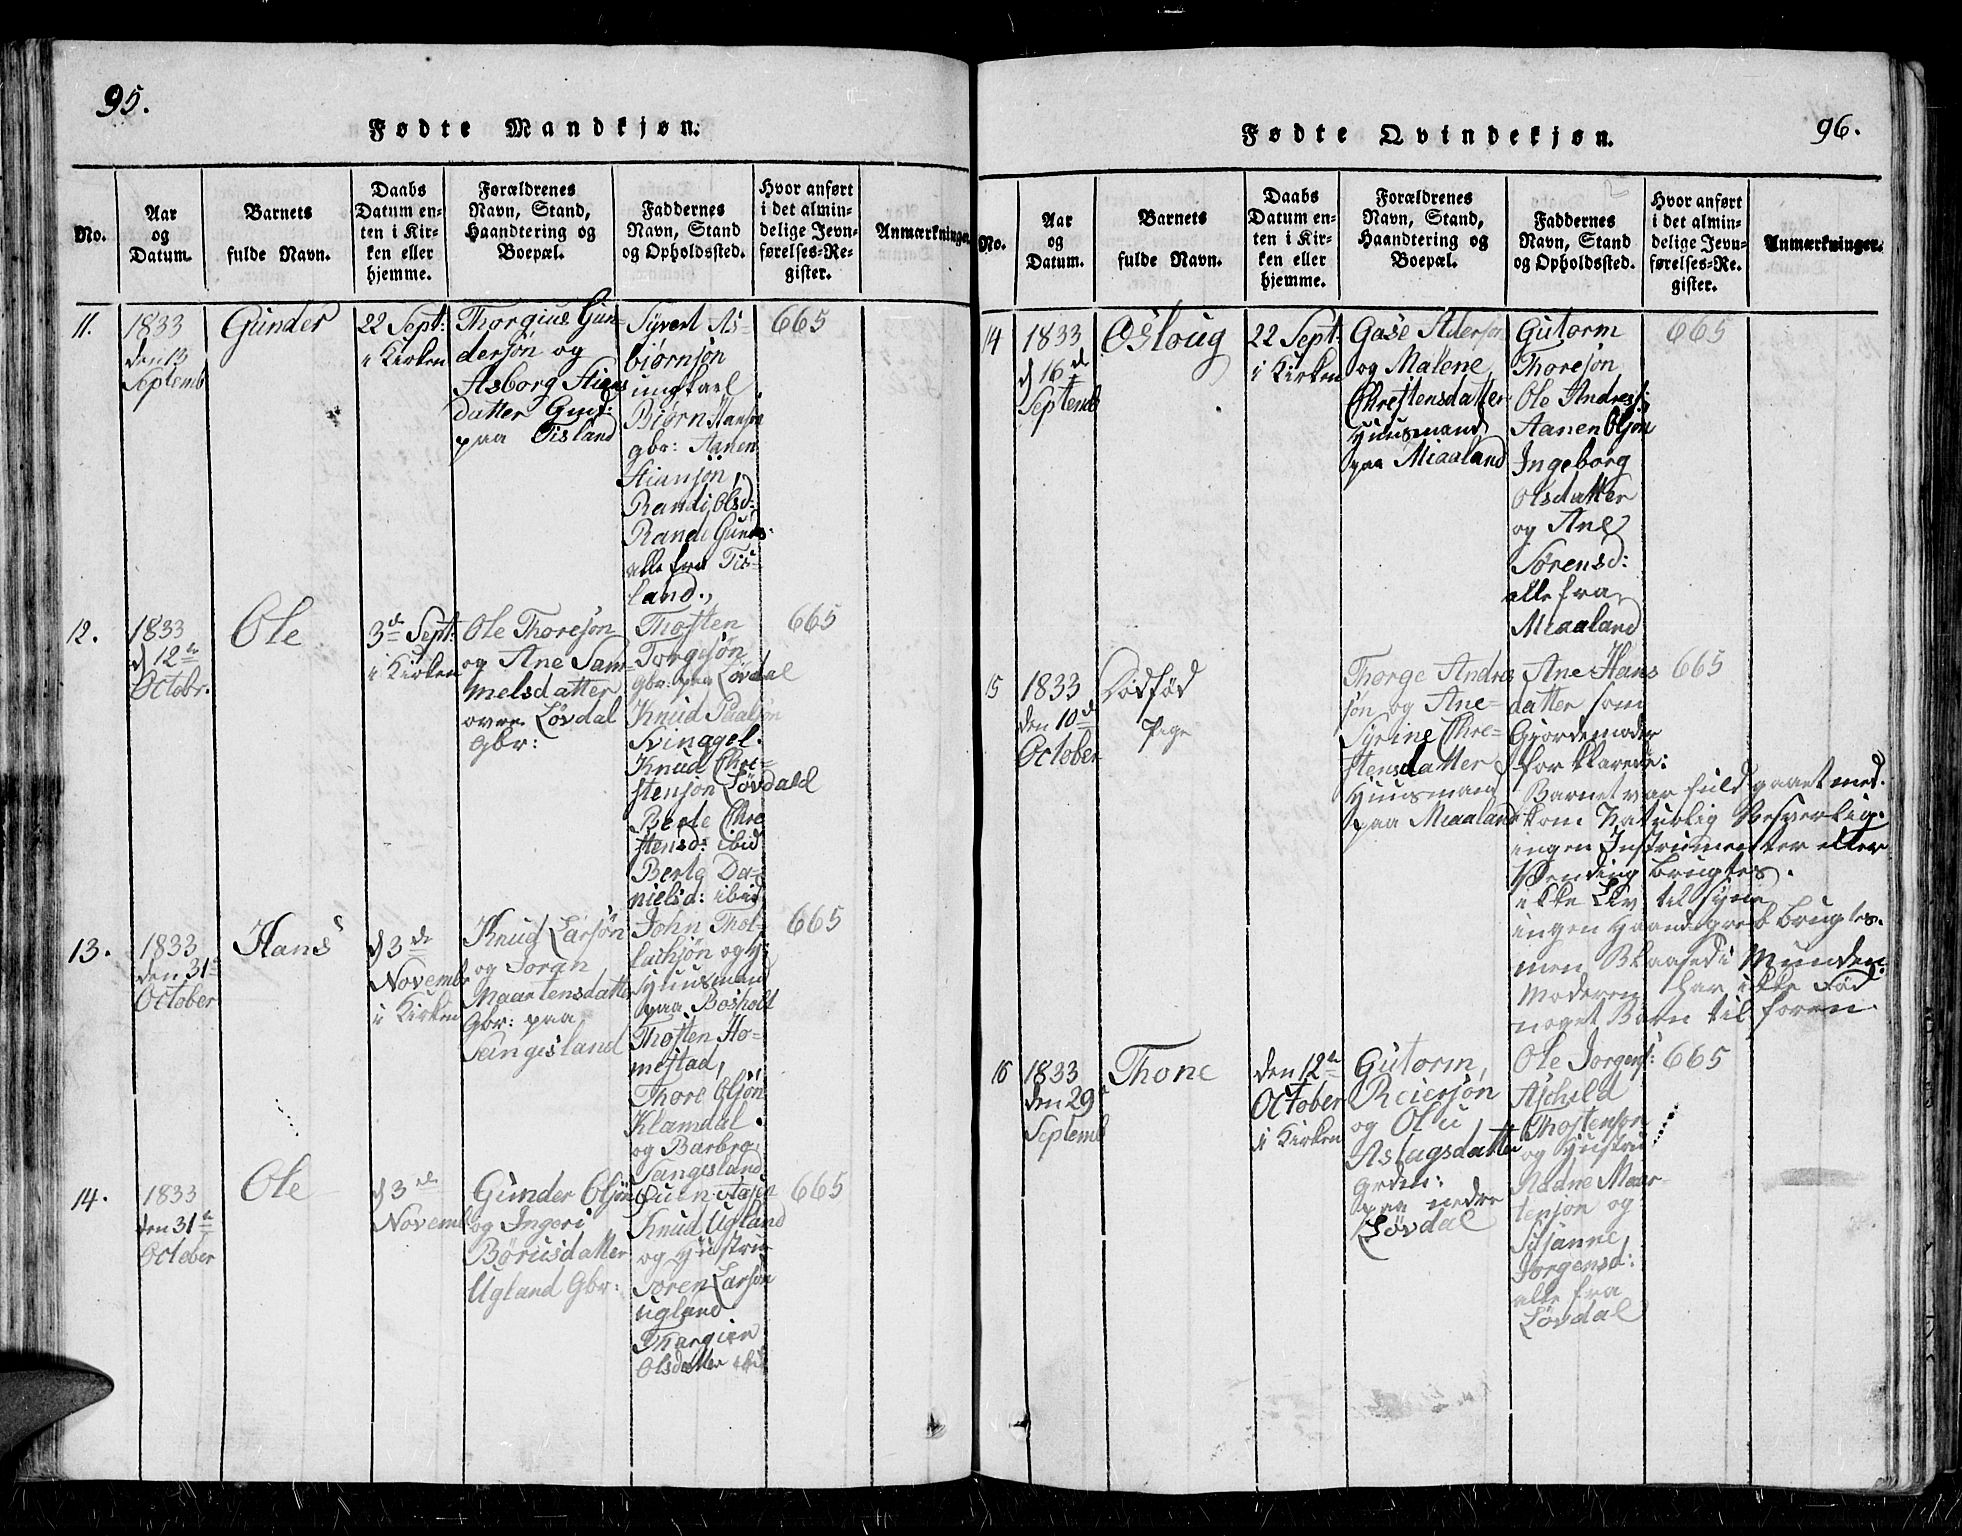 95.
Fødte Mandkjøn.
No.
Aar
og
Datum.
Barnets
fulde Navn.
Daabs
Datum en-
ten i Kir-
ken eller
hjemme.
Forældrenes
Navn, Stand,
Haandtering og
Boepæl.
Faddernes
Navn, Stand
og Opholdssted.
Hvor anført
i det almin-
delige Jevn-
førelses-Re-
gister.
Anmærkninger.
11.
1833
den 13
Septemb
Gunder
22 Sept:
i Kirken
Thorgius Gun-
dersøn og
Asborg Stians
datter Gmd:
paa Tisland
Sÿvert As-
biørnsøn
ungkarl
Biørn Hansøn
gbr: Aanen
Stiansøn,
Randi Olsd:
Randi Gund:
alle fra Tis-
land.
665
12.
1833
d 12te
Octobr.
Ole
3de Sept:
i Kirken
Ole Thoresøn
og Ane Sam-
melsdatter
øvre Løvdal
Gbr:
Thosten
Torgesøn
Gbr: paa Løvdal
Knud Paalsøn
Svinagel.
Knud Chre-
stensøn Løvdald
Berte Chre
stensd: ibid
Berte Da-
nielsd: ibid
665
13.
1833
den 31te
October
Hans
d 3de
Novembr
i Kirken
Knud Larsøn
og Joran
Maartensdatter
Gbr: paa
Sangesland
John Thol-
lachsøn og h:
Huusmand
paa Bosholt
Thosten Ho-
mestad,
Thore Olsøn
Klamdal.
og Barbro
Sangesland
665
14.
1833
den 31te
October
Ole
d 3de
Novemb
Gunder Olsøn
og Ingeri
Børusdatter
Ugland Gbr:
Knud Ugland
og Hustrue
Søren Larsøn
ugland
Thargier
Olsdatter ibid
665
96.
Fødte Qvindekjøn.
No.
Aar
og
Datum.
Barnets
fulde Navn.
Daabs
Datum en-
ten i Kir-
ken eller
hjemme.
Forældrenes
Navn, Stand,
Haandtering og
Boepæl.
Faddernes
Navn, Stand
og Opholdssted.
Hvor anført
i det almin-
delige Jevn-
førelses-Re-
gister.
Anmærkninger.
14
1833
d 16de
Septemb
Osloug
22 Sept:
i Kirken
Gase Adersøn
og Malene
Chrestensdatter
Huusmand
paa Miaaland
Gutorm
Thoresøn
Ole Andres:
Aanen Olsøn
Ingeborg
Olsdatter
og Ane
Sørensd:
alle fra
Miaaland
665
15
1833
den 10de
October
Dødfød
Pige
Thorge Andre
søn og Ane-
Syrine Chre-
stensdatter
Huusmand
paa Miaaland
Ane Hans
datter som
Giordemoder
forklarede:
Barnet var fuldgaaet med.
kom Naturlig
ingen Instrumenter eller
Vending brugtes.
ikke Liv til syne
ingen Haandgreb brugtes.
men Blaasedi Munden.
Moderen har ikke Fød
noget Barn til foren
665
16
1833
den 29
Septemb
Thone
den 12te
October
i Kirken
Gutorm
Reiersøn
og Olu
Aslagsdatter
paa nedre
Løvdal
Ole Jorgens:
Aschild
Thostensøn
og Hustru
Aadne Maar-
tensøn og
Susanne
Jorgensd:
alle fra
Løvdal
665